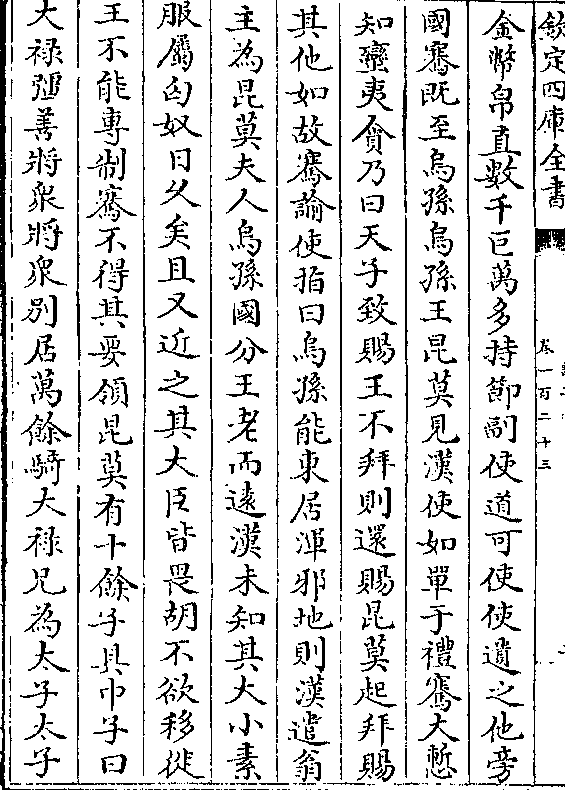 欽定四庫全書
卷一百二十三
金幣帛直數千巨萬多持節副使道可使使遺之他旁
國騫既至烏孫烏孫王昆莫見漢使如單于禮騫大慙
知蠻夷貪乃曰天子致賜王不拜則還賜昆莫起拜賜
其他如故騫諭使指曰烏孫能東居渾邪地則漢遣翁
主為昆莫夫人烏孫國分王老而遠漢未知其大小素
服屬匈奴日久矣且又近之其大臣皆畏胡不欲移徙
王不能專制騫不得其要領昆莫有十餘子其中子曰
大禄彊善將衆將衆别居萬餘騎大禄兄為太子太子